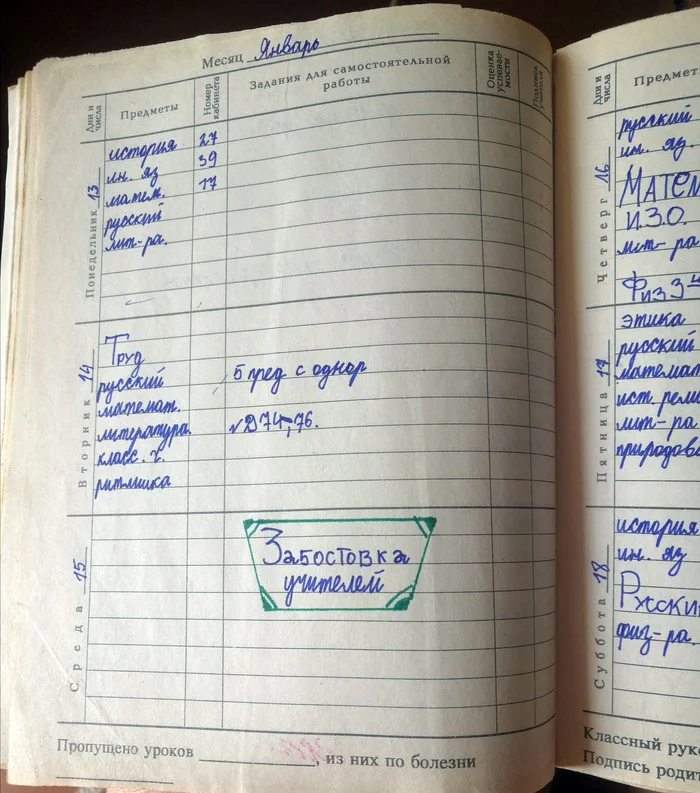 Месяц Январь
Дни и числа
Предметы
Номер кабинета
Задания для самостоятельной работы
Оценка успеваемости
Подпись учителя
Понедельник 13
история 27
ин. яз 39
матем. 17
русский
лит-ра.
Вторник 14
Труд
русский 5 пред с однор
математ.
литература. №974,76.
класс. ч.
ритмика
Среда 15
Забостовка
учителей
Пропущено уроков , из них по болезни
Дни и числа
Предмет
Четверг 16
русский
ин. яз.
Матем
ИЗО.
лит-ра
Физ
Пятница 17
этика
русский
математ
ист. рели
лит-ра
природов
Суббота 18
история
ин. яз
Русски
физ-ра.
Классный рук
Подпись родит